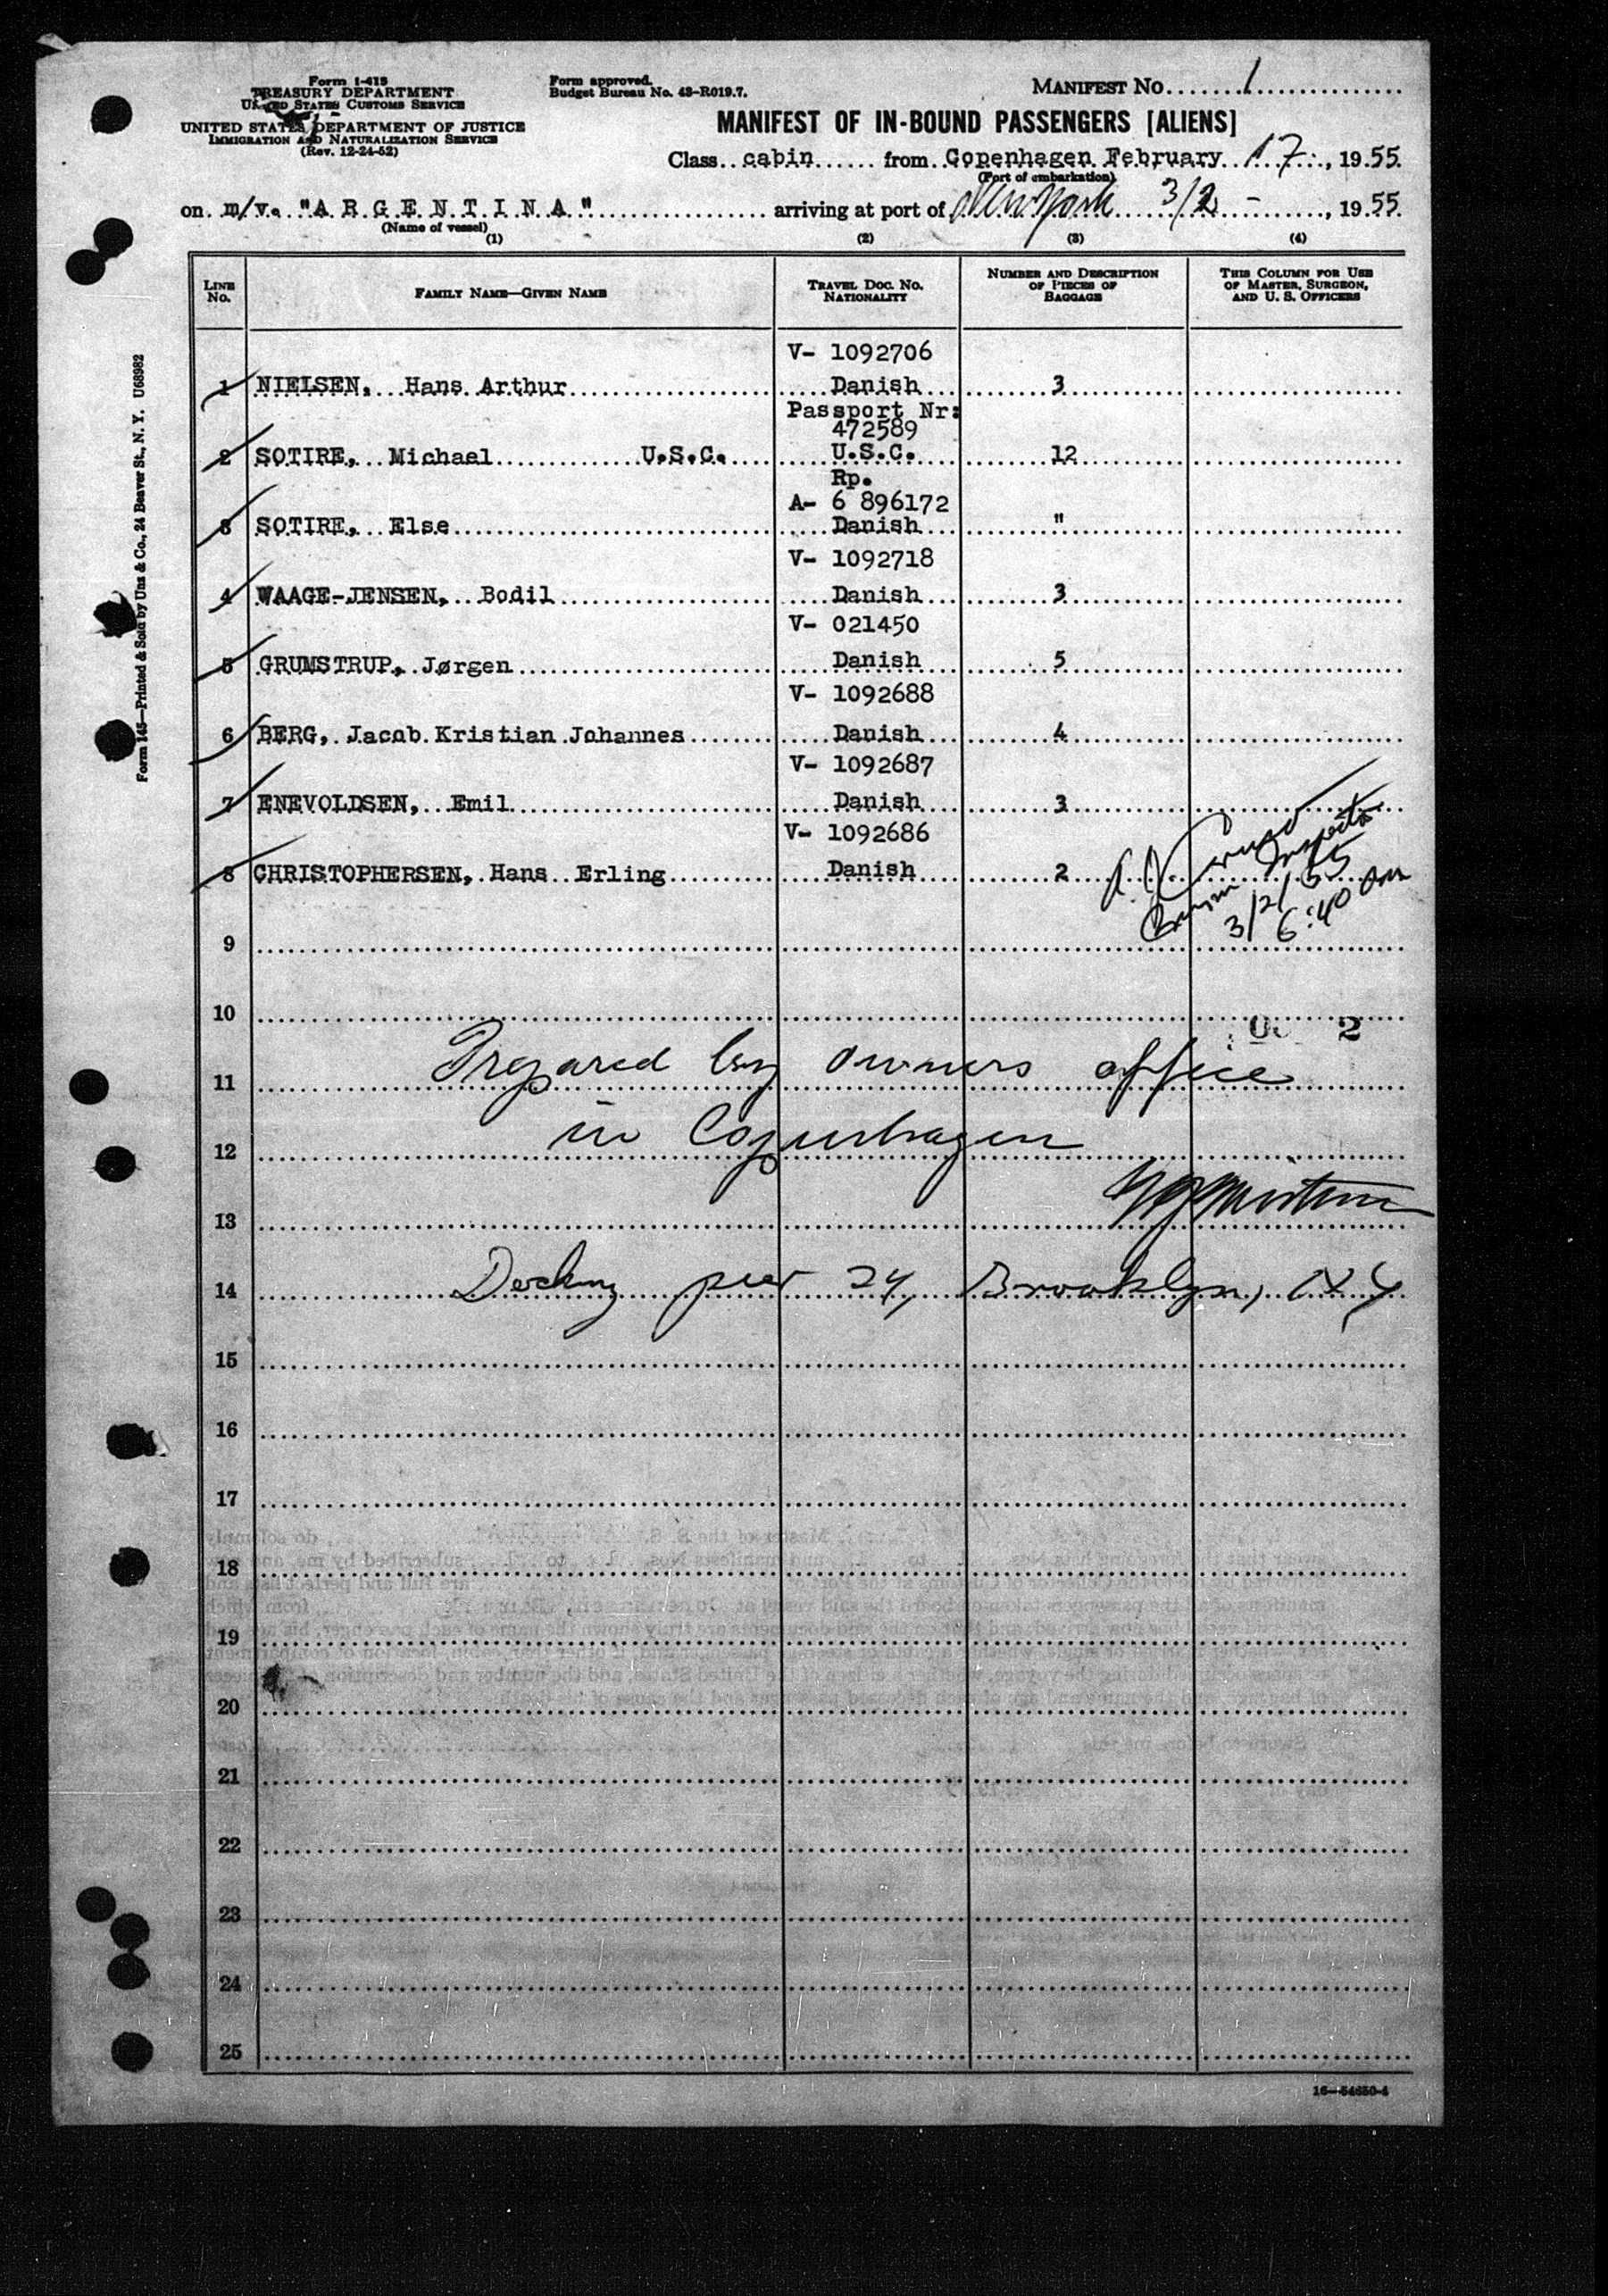 Form I-418
TREASURY DEPARTMENT
UNITED STATES CUSTOMS SERVICE
UNITED STATES DEPARTMENT OF JUSTICE
IMMIGRATION AND NATURALIZATION SERVICE
(Rev. 12-24-52)
Form approved.
Budget Bureau No. 43-R019.7.
MANIFEST NO. 1
MANIFEST OF IN-BOUND PASSENGERS [ALIENS]
Class cabin from Copenhagen February 17, 1955.
(Port of embarkation)
on m/v. "ARGENTINA" arriving at port of New York 3/2 -, 1955.
(Name of vessel)
(1) (2) (3) (4)
LINE NO. FAMILY NAME—GIVEN NAME TRAVEL DOC. NO. NATIONALITY NUMBER AND DESCRIPTION OF PIECES OF BAGGAGE THIS COLUMN FOR USE OF MASTER, SURGEON, AND U. S. OFFICERS
V- 1092706
1 NIELSEN, Hans Arthur Danish 3
Passport Nr:
472589
2 SOTIRE, Michael U.S.C. U.S.C. 12
Rp.
A- 6 896172
3 SOTIRE, Else Danish "
V- 1092718
4 WAAGE-JENSEN, Bodil Danish 3
V- 021450
5 GRUMSTRUP, Jørgen Danish 5
V- 1092688
6 BERG, Jacob Kristian Johannes Danish 4
V- 1092687
7 ENEVOLDSEN, Emil Danish 3
V- 1092686
8 CHRISTOPHERSEN, Hans Erling Danish 2
3/2/55
6:40 am
9
10
2
11 Prepared by owners office
12 in Copenhagen
13
14 Docking pier 24, Brooklyn, NY
15
16
17
18
19
20
21
22
23
24
25
16—54650-4
Form 145—Printed & Sold by Unz & Co., 24 Beaver St., N. Y. U68982